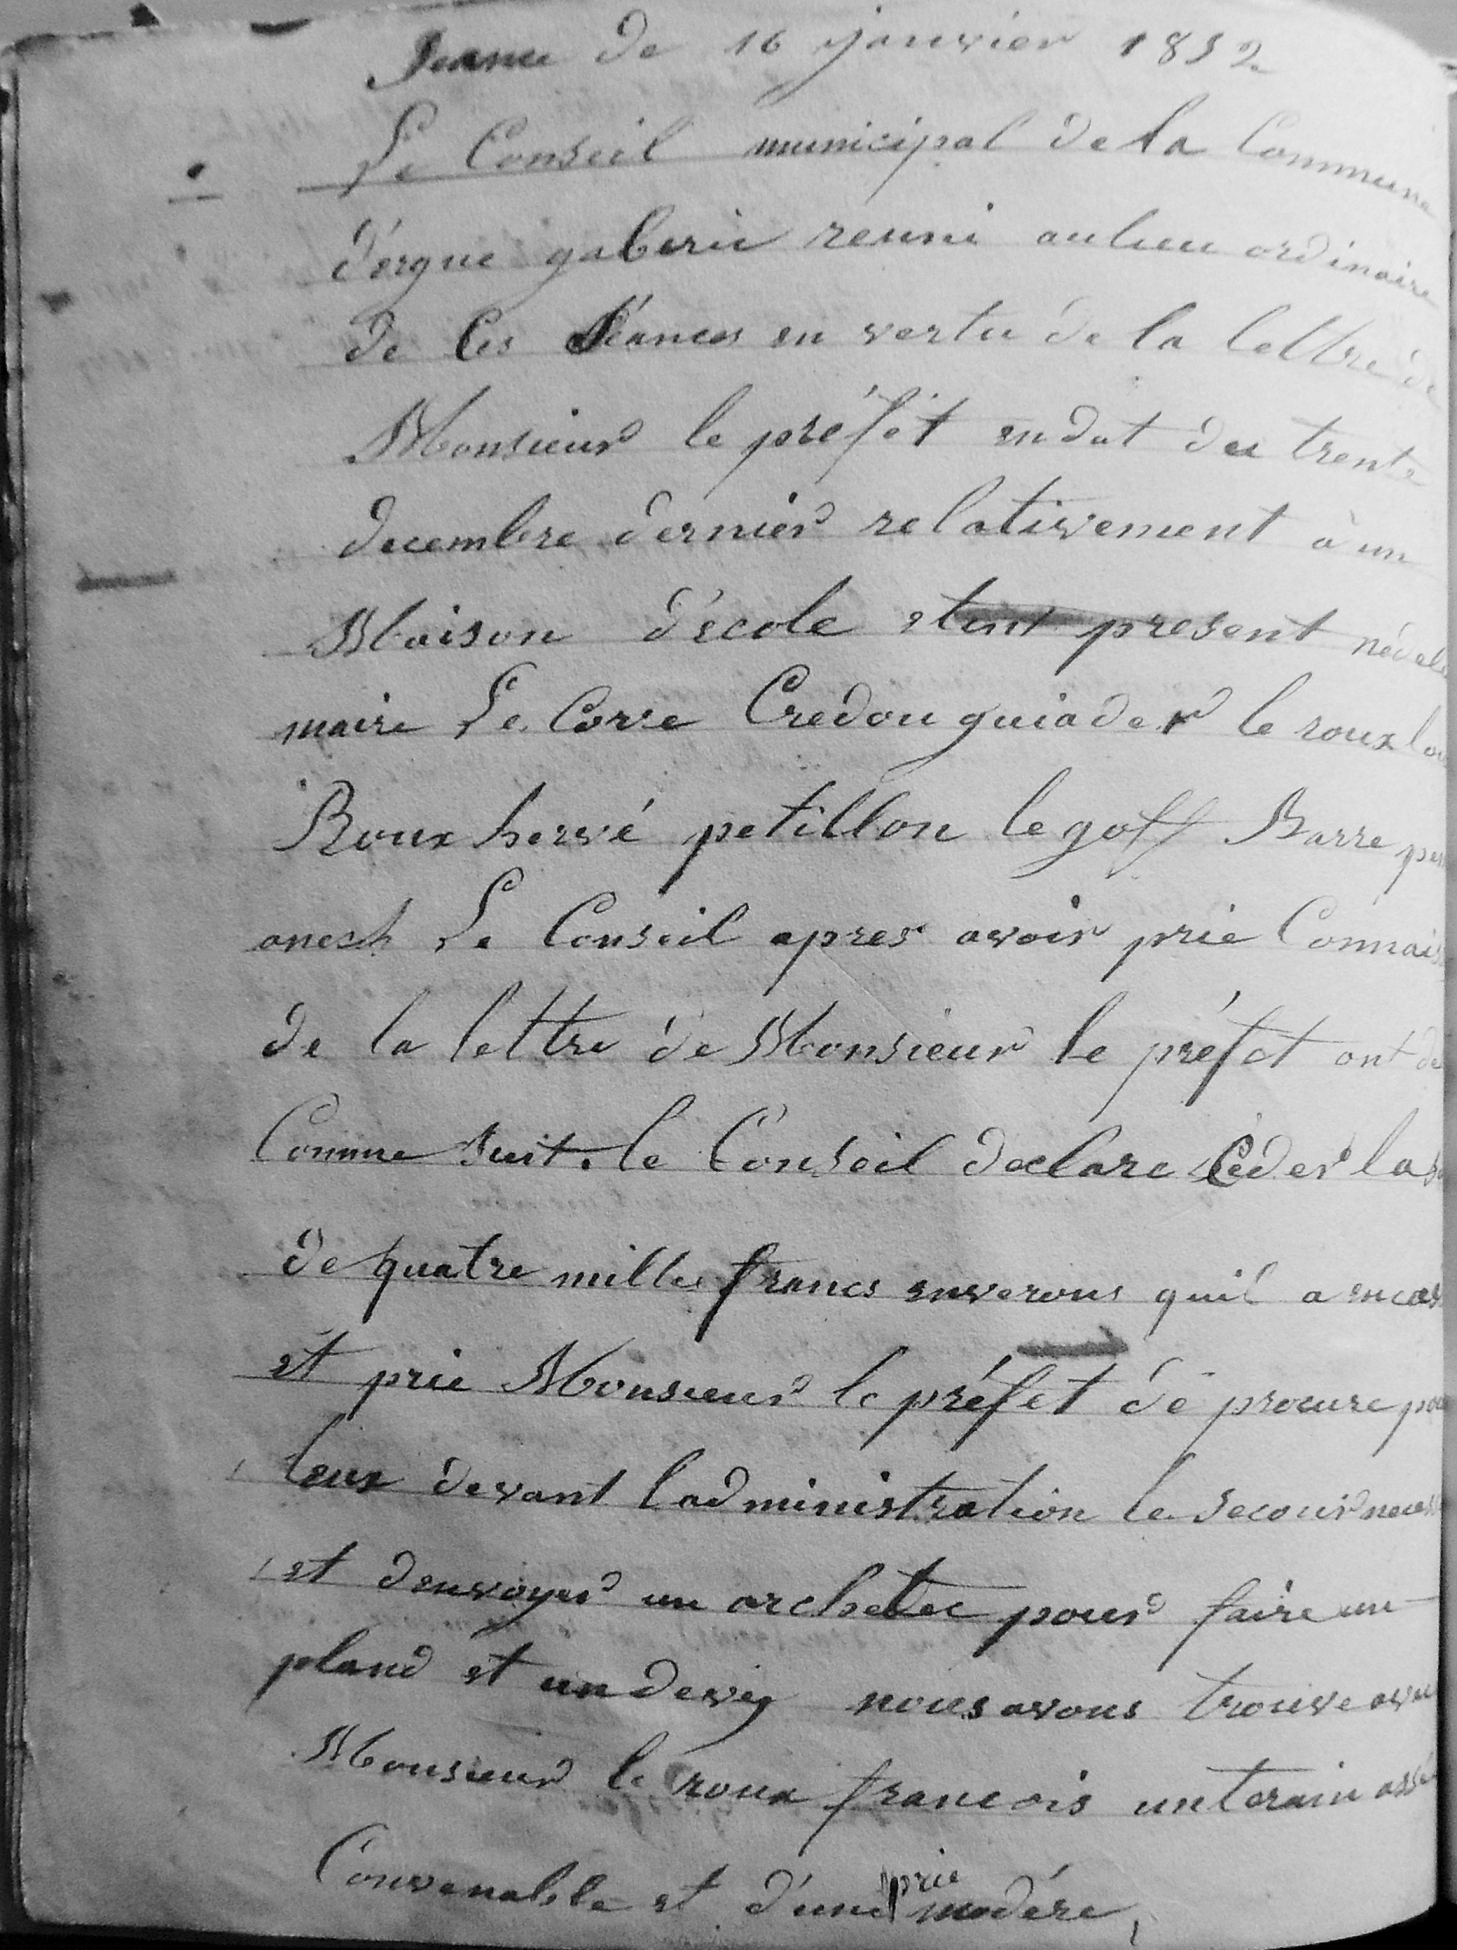 Séance de 16 janvier 1852
Le Conseil municipal de la Commune
d'ergue gaberic reuni au lieu ordinaire
de Ces séances en vertu de la lettre de
Monsieur le préfet en dat du trente
decembre dernier relativement à un
Maison d'école etent present nédele
maire Le Corre Credou guiader le roux lou
Roux hervé petillon le goff Barre per
onech Le Conseil apres avoir prie Connais
de la lettre de Monsieur le préfet ont de
Comme suit. le Conseil declare Céder la so
de quatre milles francs enverons quil a encas
et prie Monsieur le préfet de procure pour
leux devant l'administration le secour neces
et d'envoyer un archetec pour faire un
pland et un devig nous avons trouve avec
Monsieur le roux francois un terain assé
Convenable et d'une prie modére,